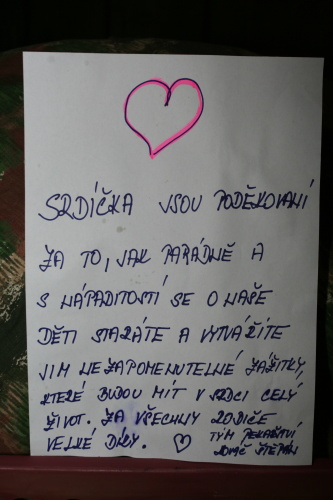 SRDÍČKA JSOU PODĚKOVÁNÍ
ZA TO, JAK PARÁDNĚ A
S NÁPADITOSTÍ SE O NAŠE
DĚTI STARÁTE A VYTVÁŘÍTE
JIM NEZAPOMENUTELNÉ ZÁŽITKY,
KTERÉ BUDOU MÍT V SRDCI CELÝ
ŽIVOT. ZA VŠECHNY RODIČE
VELKÉ DÍKY. TÝM PEKAŘSTVÍ
KOVÁČ ŠTĚPÁN